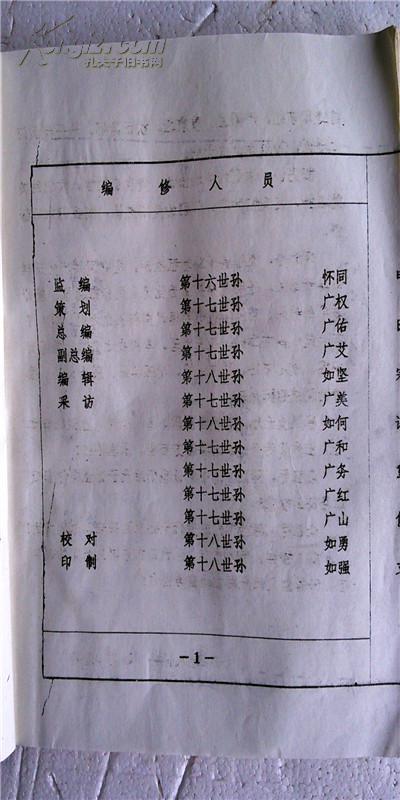 Kongfz.com
孔夫子旧书网
编 修 人 员
监 编 第十六世孙 怀同
策 划 第十七世孙 广权
总 编 第十七世孙 广佑
副总编 第十七世孙 广艾
编 辑 第十八世孙 如坚
采 访 第十七世孙 广美
第十八世孙 如何
第十七世孙 广和
第十七世孙 广务
第十七世孙 广红
第十七世孙 广山
校 对 第十八世孙 如勇
印 制 第十八世孙 如强
-1-